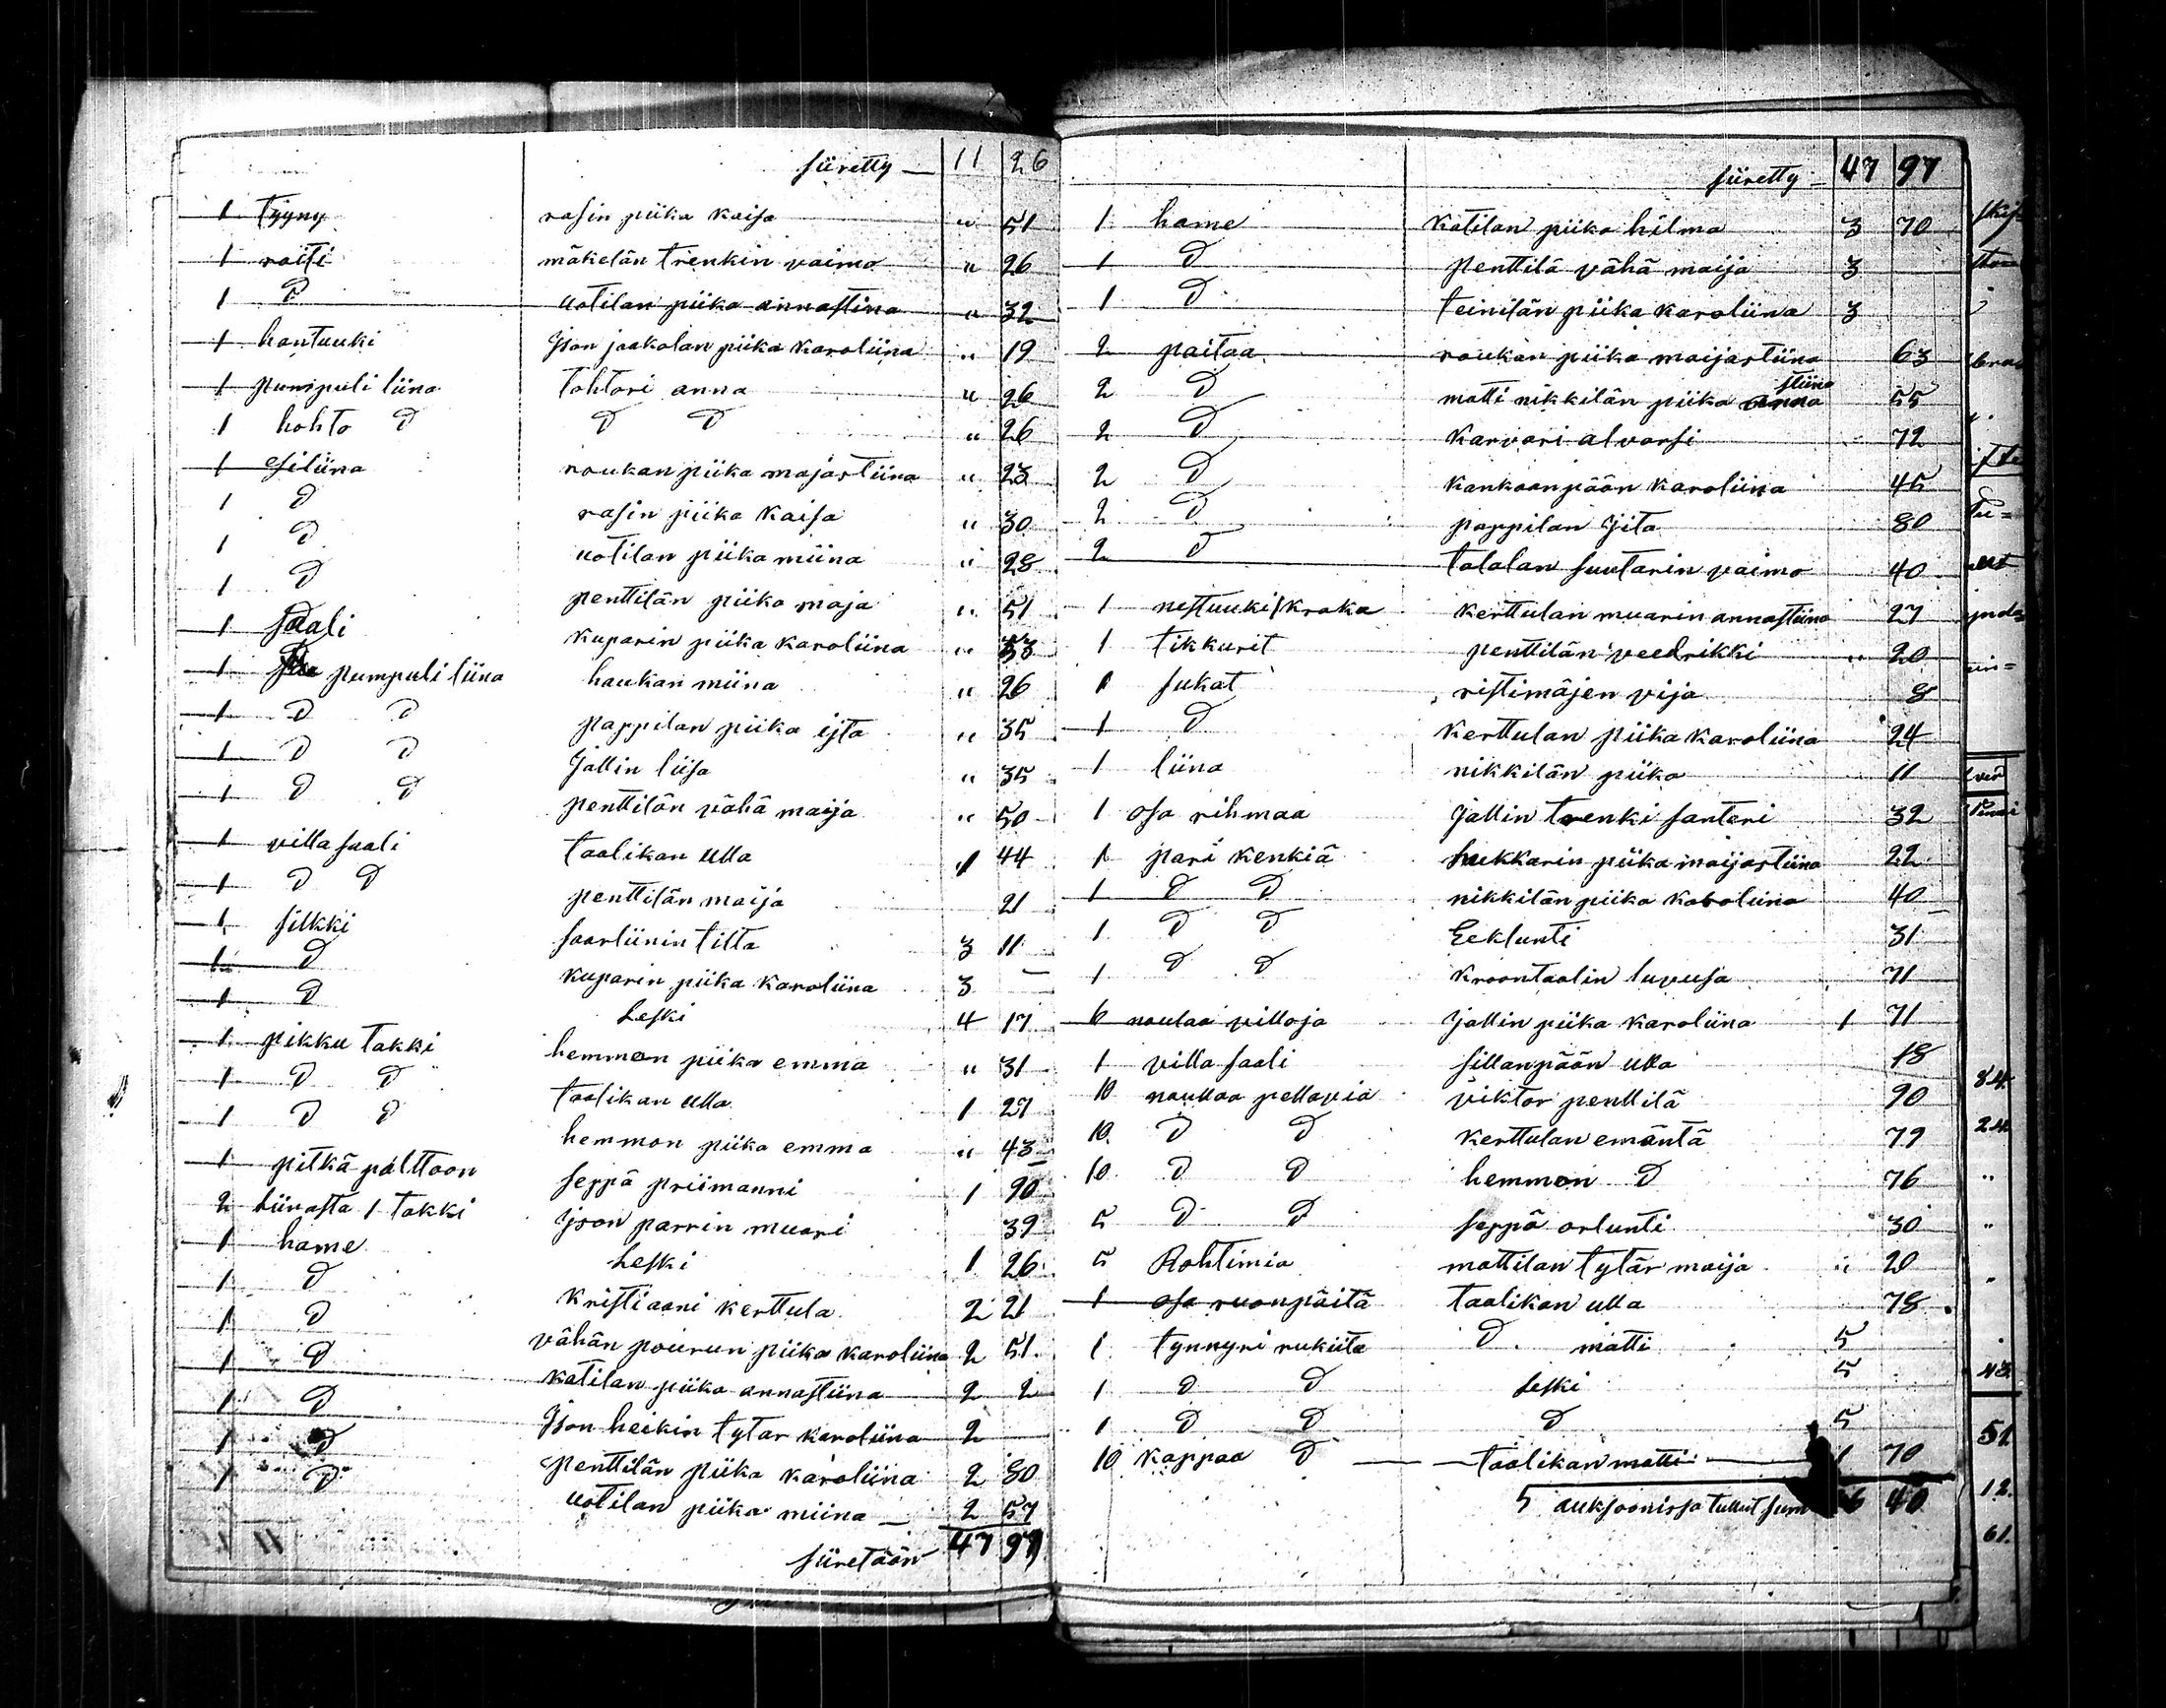 siiretty 11 26
1 tyyny rasin piika kaisa " 51
1 raiti mäkelän trenkin vaimo " 26
1 D uotilan piika annastina " 32
1 hantuuki Json jaakolan piika karoliina " 19
1 pumpuli liina tohtori anna " 26
1 hohto D D D " 26
1 esiliina roukan piika majastiina " 23
1 D rasin piika kaisa " 30
1 D uotilan piika miina " 28
1 D penttilän piika maja " 51
1 saali kuparin piika karoliina " 33
1 pumpuli liina haukan miina " 26
1 D D pappilan piika ijta " 35
1 D D Jallin liisa " 35
1 D D penttilän vähä maija " 50
1 villa saali taalikan ulla 1 44
1 D D penttilän maija 21
1 silkki saarliinin tilta 3 11
1 D kuparin piika karoliina 3 —
1 D Leski 4 17
1 pikku takki hemmon piika emma " 31
1 D D taalikan ulla 1 27
1 D D hemmon piika emma " 43
1 pitkä palttoon seppä priimanni 1 90
2 liinasta 1 takki Json parrin muari 39
1 hame Leski 1 26
1 D kristiaani kerttula 2 21
1 D vähän pourun piika karoliina 2 51
1 D katilan piika annastiina 2 2
1 D Json heikin tytar karoliina 2
1 D penttilän piika karoliina 2 80
1 D uotilan piika miina 2 57
siiretään 47 97
siiretty 47 97
1 hame katilan piika hilma 3 70
1 D penttilä vähä maija 3
1 D teinilän piika karoliina 3
2 paitaa roukan piika maijastiina 63
2 D matti nikkilän piika stiina 55
2 D karvari alvarsi 72
2 D kankaanpään karoliina 45
2 D pappilan Jita 80
2 D talalan suutarin vaimo 40
1 nestuuki / kraka kerttulan muarin annastiina 27
1 tikkurit penttilän veedrikki " 20
1 sukat ristimäjen vija 8
1 D kerttulan piika karoliina 24
1 liina nikkilän piika 11
1 osa rihmaa Jallin trenki santeri 32
1 pari kenkiä piika maijastiina 22
1 D D nikkilän piika karoliina 40
1 D D Eeklunti 31
1 D D kroontaalin luvusa 71
6 naulaa villoja Jallin piika karoliina 1 71
1 villa saali sillanpään ulla 18
10 naullaa pellavia viktor penttilä 90
10 D D kerttulan emäntä 79
10 D D hemmon D 76
5 D D seppä orlunti 30
5 Rohtimia mattilan tytär maija " 20
1 osa ruonpäitä taalikan ulla 78
1 tynnyri rukiita D matti 5
1 D D Leski 5
1 D D D 5
10 kappaa D taalikan matti 1 70
auksoonissa tullut sum 6 40
84
24
"
"
43
51
12
61